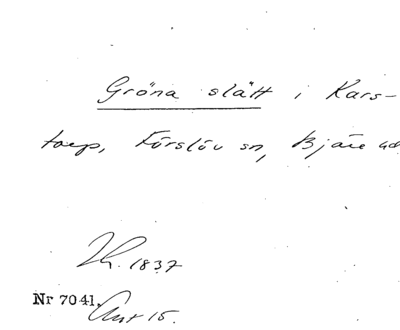 Gröna slätt i Kars-
torp, Förslöv sn, Bjäre hd
Lh. 1837
Nr 7041. Ant 15.